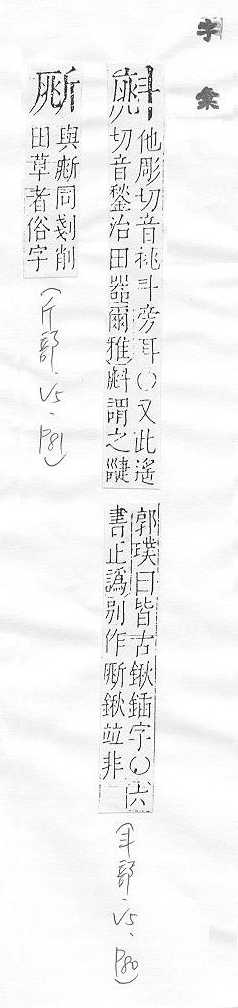 字彙
𣂁
他彫切音祧斗旁耳○又此遙
切音鍫治田器爾雅𣂁謂之疀
郭璞曰皆古鍬鍤字○六
書正譌別作鍬竝非
(斗部、V5、P80)
與同剗削
田草者俗字
(斤部、V5、P81)